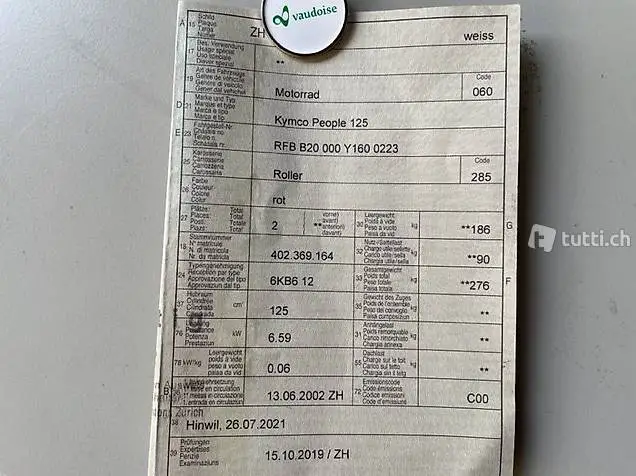 vaudoise
A 15 Schild Plaque Targa Nummer ZH weiss
17 Bes. Verwendung Usage spécial Uso speciale Diever spezial **
19 Art des Fahrzeugs Genre de véhicule Genere di veicolo Gener dal vehichel Motorrad Code 060
D 21 Marke und Typ Marque et type Marca e tipo Marca e tip Kymco People 125
E 23 Fahrgestell-Nr. Châssis no Telaio n. Schassis nr. RFB B20 000 Y160 0223
25 Karosserie Carrosserie Carrozzeria Carossaria Roller Code 285
26 Farbe Couleur Colore Colur rot
27 Plätze: Total Places: Total Posti: Totale Plazs: Total 2 vorne) avant) **anteriori) (davant) 30 Leergewicht Poids à vide Peso a vuoto Paisa da vid kg **186 G
18 Stammnummer N° matricule N. di matricola Nr. da matricla 402.369.164 32 Nutz-/Sattellast Charge utile/sellette Carico utile/sella Chargia utila/sella kg **90
24 Typengenehmigung Réception par type Approvazione del tipo Approvaziun dal tip 6KB6 12 33 Gesamtgewicht Poids total Peso totale Paisa totala kg **276 F
37 Hubraum Cylindrée Cilindrata Cilindrada cm³ 125 35 Gewicht des Zuges Poids de l'ensemble Peso del convoglio Paisa cumposiziun kg **
76 Leistung Puissance Potenza Prestaziun kW 6.59 31 Anhängelast Poids remorquable Carico rimorchiato Chargia annexa kg **
78 kW/kg Leergewicht poids à vide peso a vuoto paisa da vid 0.06 55 Dachlast Charge sur le toit Carico sul tetto Chargia sin il tetg kg **
1. Inverkehrsetzung 1ère mise en circulation 1a messa in circolazione entrada en circulaziun 13.06.2002 ZH 72 Emissionscode Code émissions Codice emissioni Code d'emissiuns C00
Zürich
38 Hinwil, 26.07.2021
39 Prüfungen Expertises Perizie Examinaziuns 15.10.2019 / ZH
tutti.ch